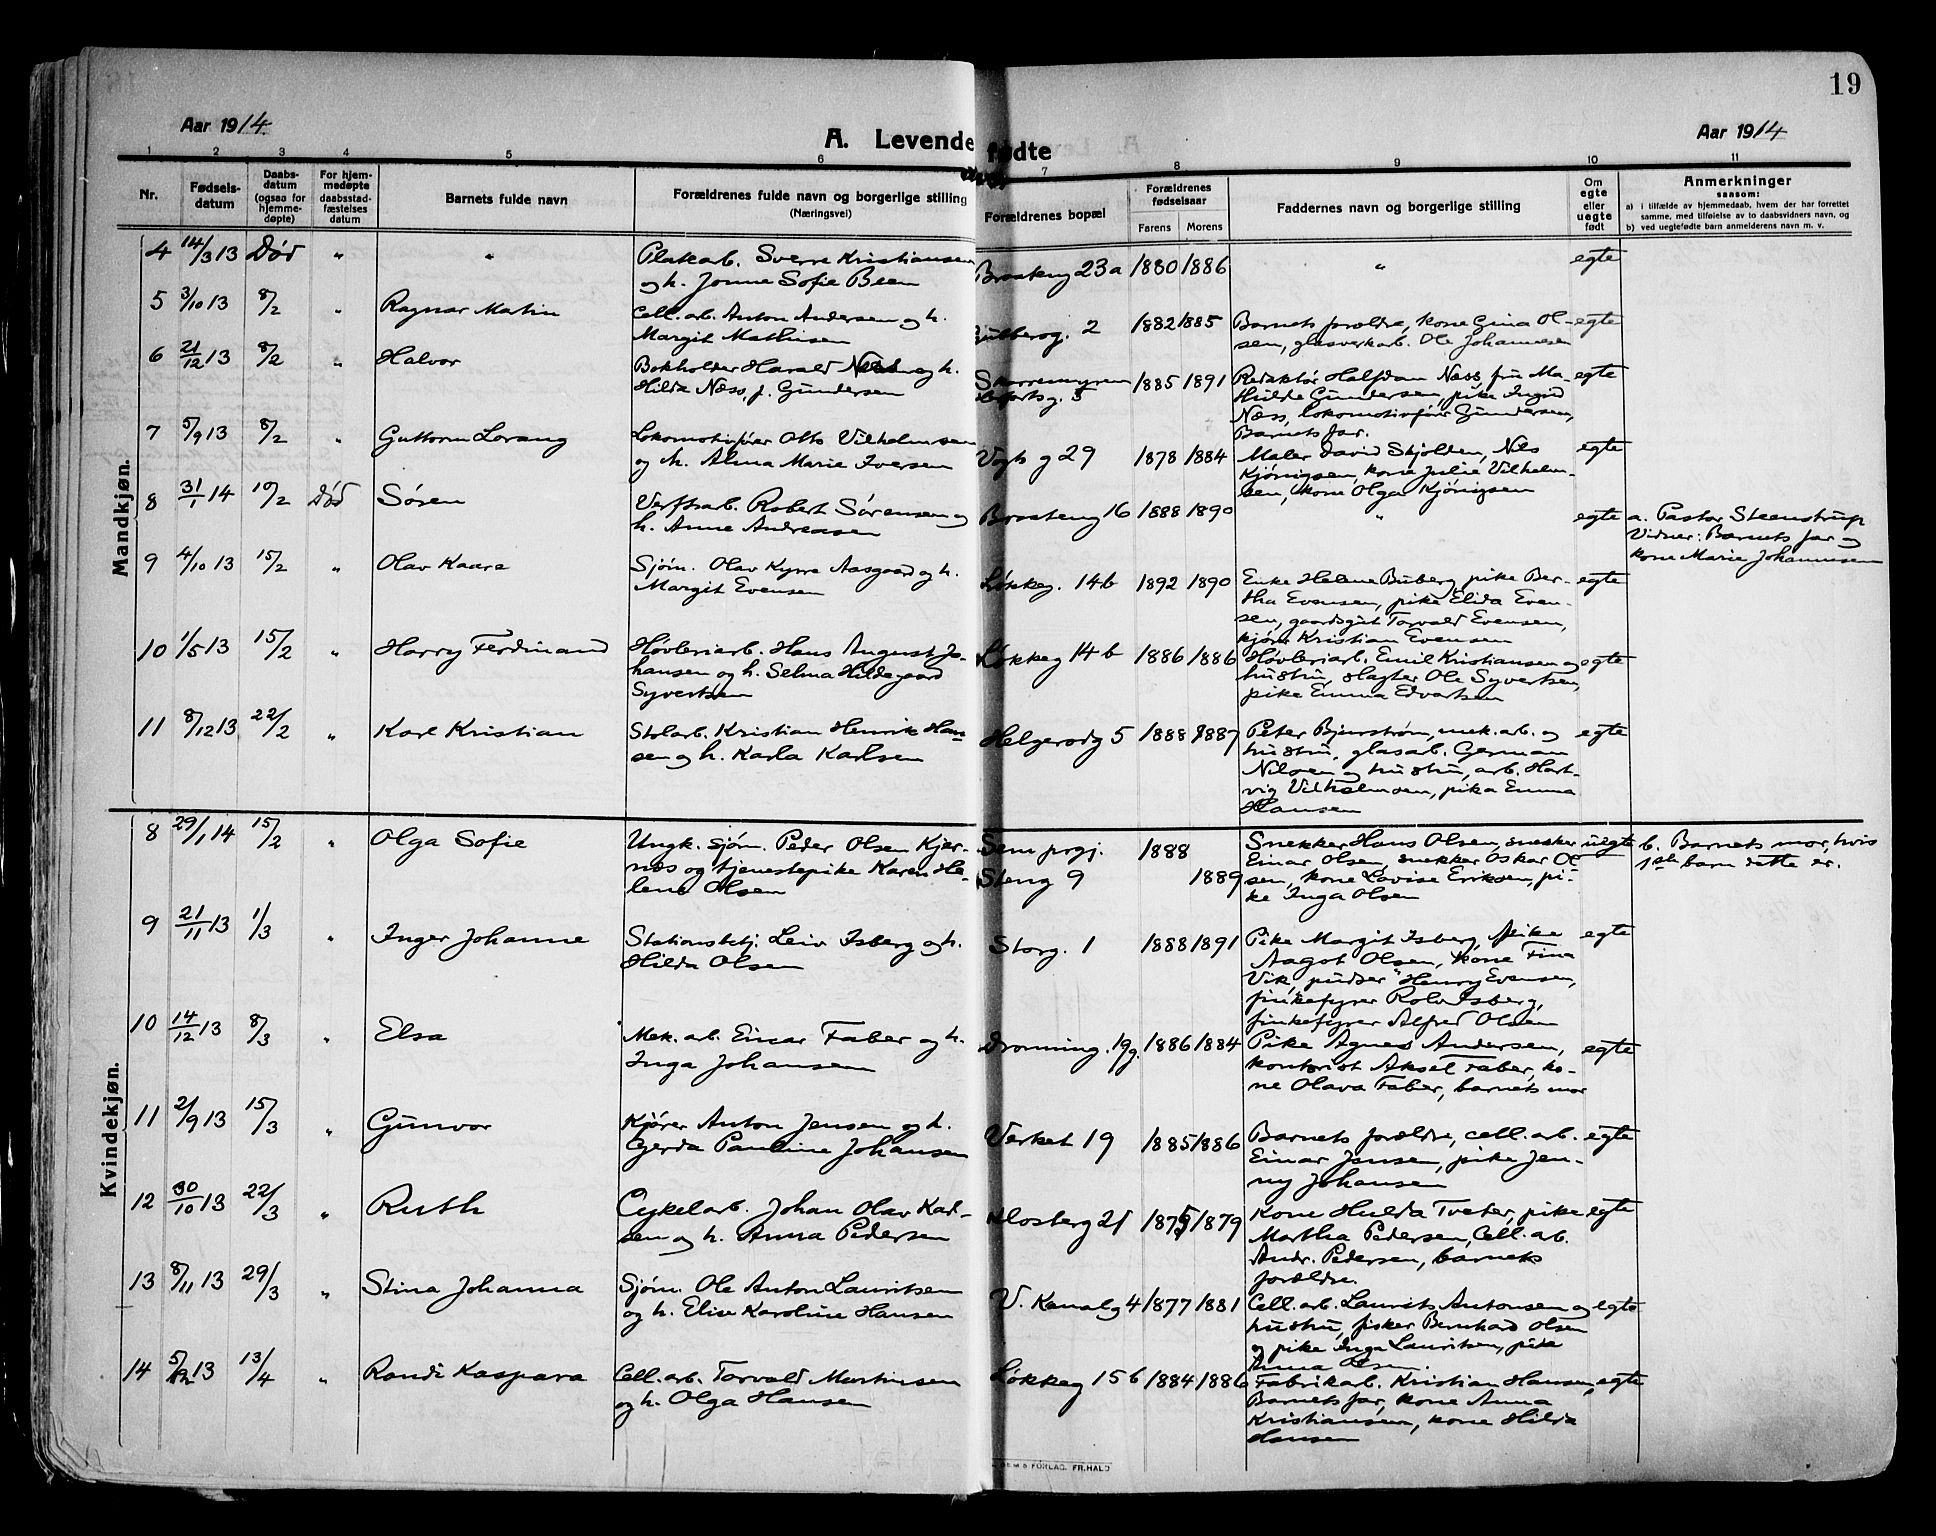 19
Aar 1914
A. Levende fødte
Aar 1914
1 2 3 4 5 6 7 8 9 10 11
Nr.
Fødsels-
datum
Daabs-
datum
(ogsaa for
hjemme-
døpte)
For hjem-
medøpte
daabsstad-
fæstelses
datum
Barnets fulde navn
Forældrenes fulde navn og borgerlige stilling
(Næringsvei)
Forældrenes bopæl
Forældrenes
fødselsaar
Farens Morens
Faddernes navn og borgerlige stilling
Om
egte
eller
uegte
født
Anmerkninger
saasom:
a) i tilfælde av hjemmedaab, hvem der har forrettet
samme, med tilføielse av to daabsvidners navn, og
b) ved uegtefødte barn anmelderens navn m. v.
Mandkjøn.
4 14/3 13 Død " " Sverre Kristiansen
og h. Jonne Sofie Been
Brosteng 23a 1880 1886 " egte
5 3/10 13 8/2 " Ragnar Martin Cell. arb. Anton Andersen og h.
Margit Mathisen
2 1882 1885 Barnets forældre, kone Gina Ol-
sen, glasverkarb. Ole Johannesen
egte
6 21/12 13 8/2 " Halvor Bokholder Harald Næss og h.
Hilda Næss, f. Gundersen
Skarremyren
5 1885 1891 Redaktør Halfdan Næss, fru Ma-
thilde Gundersen, pike Ingrid
Næss, lokomotivfører Gundersen,
Barnets far.
egte
7 5/9 13 8/2 " Guttorm Lorang Lokomotivfører Otto Vilhelmsen
og h. Alma Marie Iversen
Vogts g 29 1878 1884 Maler David Skjolden, Nils
Kjønigsen, kone Julie Vilhelm-
sen, kone Olga Kjønigsen
egte
8 31/1 14 10/2 Død Søren Verftsarb. Robert Sørensen og
h. Anne Andreasen
Brosteng 16 1888 1890 " egte a. Pastor Steenstrup
Vidner: Barnets far og
kone Marie Johannesen
9 4/10 13 15/2 " Olav Kaare Sjøm. Olav Kyrre Aasgaard og h.
Margit Evensen
Løkkeg. 14b 1892 1890 Enke Helene Buberg pike Ber-
tha Evensen, pike Elida Even-
sen, gaardsgut Torvald Evensen,
kjører Kristian Evensen
egte
10 1/5 13 15/2 " Harry Ferdinand Høvleriarb. Hans August Jo-
hansen og h. Selma Hildegaard
Syvertsen
Løkkeg 14b 1886 1886 Høvleriarb. Emil Kristiansen og
hustru, slagter Ole Syvertsen,
pike Emma Edvartsen
egte
11 8/12 13 22/2 " Karl Kristian Stolarb. Kristian Henrik Han-
sen og h. Karla Karlsen
Helgerodg 5 1888 1887 Peter Bjurstrøm, mek. arb. og
hustru, glasarb. German
Nilsen og hustru, arb. Hart-
vig Vilhelmsen, pike Emma
Hansen
egte
Kvindekjøn.
8 29/1 14 15/2 " Olga Sofie Ungk. sjøm. Peder Olsen Kjer-
næs og tjenestepike Karen He-
lene Olsen
Sem prgj.
Steng 9
1888
1889
Snekker Hans Olsen, snekker
Einar Olsen, snekker Oskar Ol-
sen, kone Lovise Eriksen, pi-
ke Inga Olsen
uegte b. Barnets mor, hvis
1ste barn dette er.
9 21/11 13 1/3 " Inger Johanne Stationsbetj. Leiv Isberg og h.
Hilda Olsen
Storg. 1 1888 1891 Pike Margit Isberg, pike
Aagot Olsen, kone Tina
Vik, pudser Henry Evensen,
finkefyrer Rolv Isberg,
finkefyrer Alfred Olsen
egte
10 14/12 13 8/3 " Elsa Mek. arb. Einar Faber og h.
Inga Johansen
Dronning. 19g. 1886 1884 Pike Agnes Andersen,
kontorist Aksel Faber, ko-
ne Olava Faber, barnets mor
egte
11 2/9 13 15/3 " Gunvor Kjører Anton Jensen og h.
Gerda Pauline Johansen
Verket 19 1885 1886 Barnets forældre, cell. arb.
Einar Jensen, pike Jen-
ny Johansen
egte
12 30/10 13 22/3 " Ruth Cykelarb. Johan Olav Karl-
sen og h. Anna Pedersen
Klosterg 21 1875 1879 Kone Hulda Tveter, pike
Martha Pedersen, Cell. ab.
Andr. Pedersen, barnets
forældre.
egte
13 8/11 13 29/3 " Stina Johanna Sjøm. Ole Anton Lauritsen
og h. Elise Karoline Hansen
V. Kanalg 4 1877 1881 Cell. arb. Laurits Antonsen og
hustru, fisker Bernhard Olsen
og pike Inga Lauritsen, pike
Anna Olsen.
egte
14 5/12 13 13/4 " Randi Kaspara Cell. arb. Torvald Martinsen
og h. Olga Hansen
Løkkeg 15b 1884 1886 Fabrikarb. Kristian Hansen,
Barnets far, kone Anna
Kristiansen, kone Hilda
Hansen
egte
FORLAG. FR.HALD